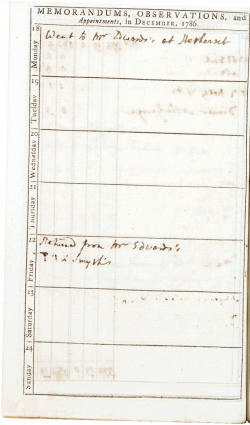 MEMORANDUMS, OBSERVATIONS, and
Appointments, in DECEMBER, 1786.
18 Monday
Went to Mr Edwards's at
19 Tuesday
20 Wednesday
21 Thursday
22 Friday
Returned from Mr Edwards's
Smyth's
23 Saturday
24 Sunday